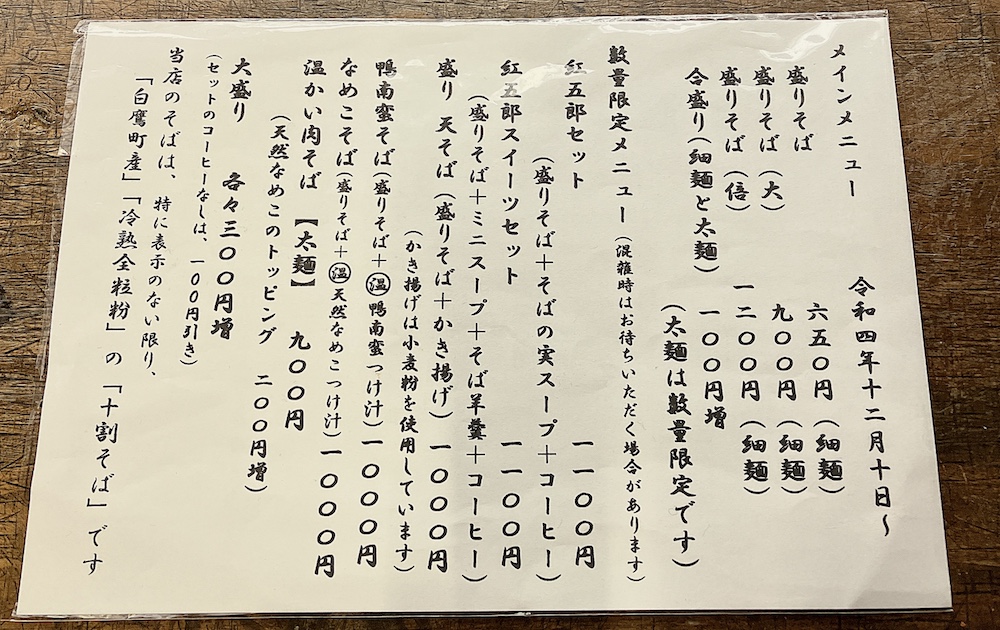 令和四年十二月十日～
メインメニュー
盛りそば 六五〇円（細麺）
盛りそば（大） 九〇〇円（細麺）
盛りそば（倍） 一二〇〇円（細麺）
合盛り（細麺と太麺） 一〇〇円増
（太麺は数量限定です）
数量限定メニュー（混雑時はお待ちいただく場合があります）
紅五郎セット 一一〇〇円
（盛りそば＋そばの実スープ＋コーヒー）
紅五郎スイーツセット 一一〇〇円
（盛りそば＋ミニスープ＋そば羊羹＋コーヒー）
盛り 天そば（盛りそば＋かき揚げ）一〇〇〇円
（かき揚げは小麦粉を使用しています）
鴨南蛮そば（盛りそば＋㊌鴨南蛮つけ汁）一〇〇〇円
なめこそば（盛りそば＋温天然なめこつけ汁）一〇〇〇円
温かい肉そば【太麺】 九〇〇円
（天然なめこのトッピング 二〇〇円増）
大盛り 各々三〇〇円増
（セットのコーヒーなしは、一〇〇円引き）
当店のそばは、特に表示のない限り、
「白鷹町産」「冷熟全粒粉」の「十割そば」です